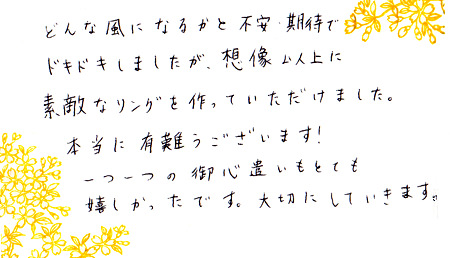 どんな風になるかと不安・期待で
ドキドキしましたが、想像以上に
素敵なリングを作っていただけました。
本当に有難うございます!
一つ一つの御心遣いもとても
嬉しかったです。大切にしていきます。